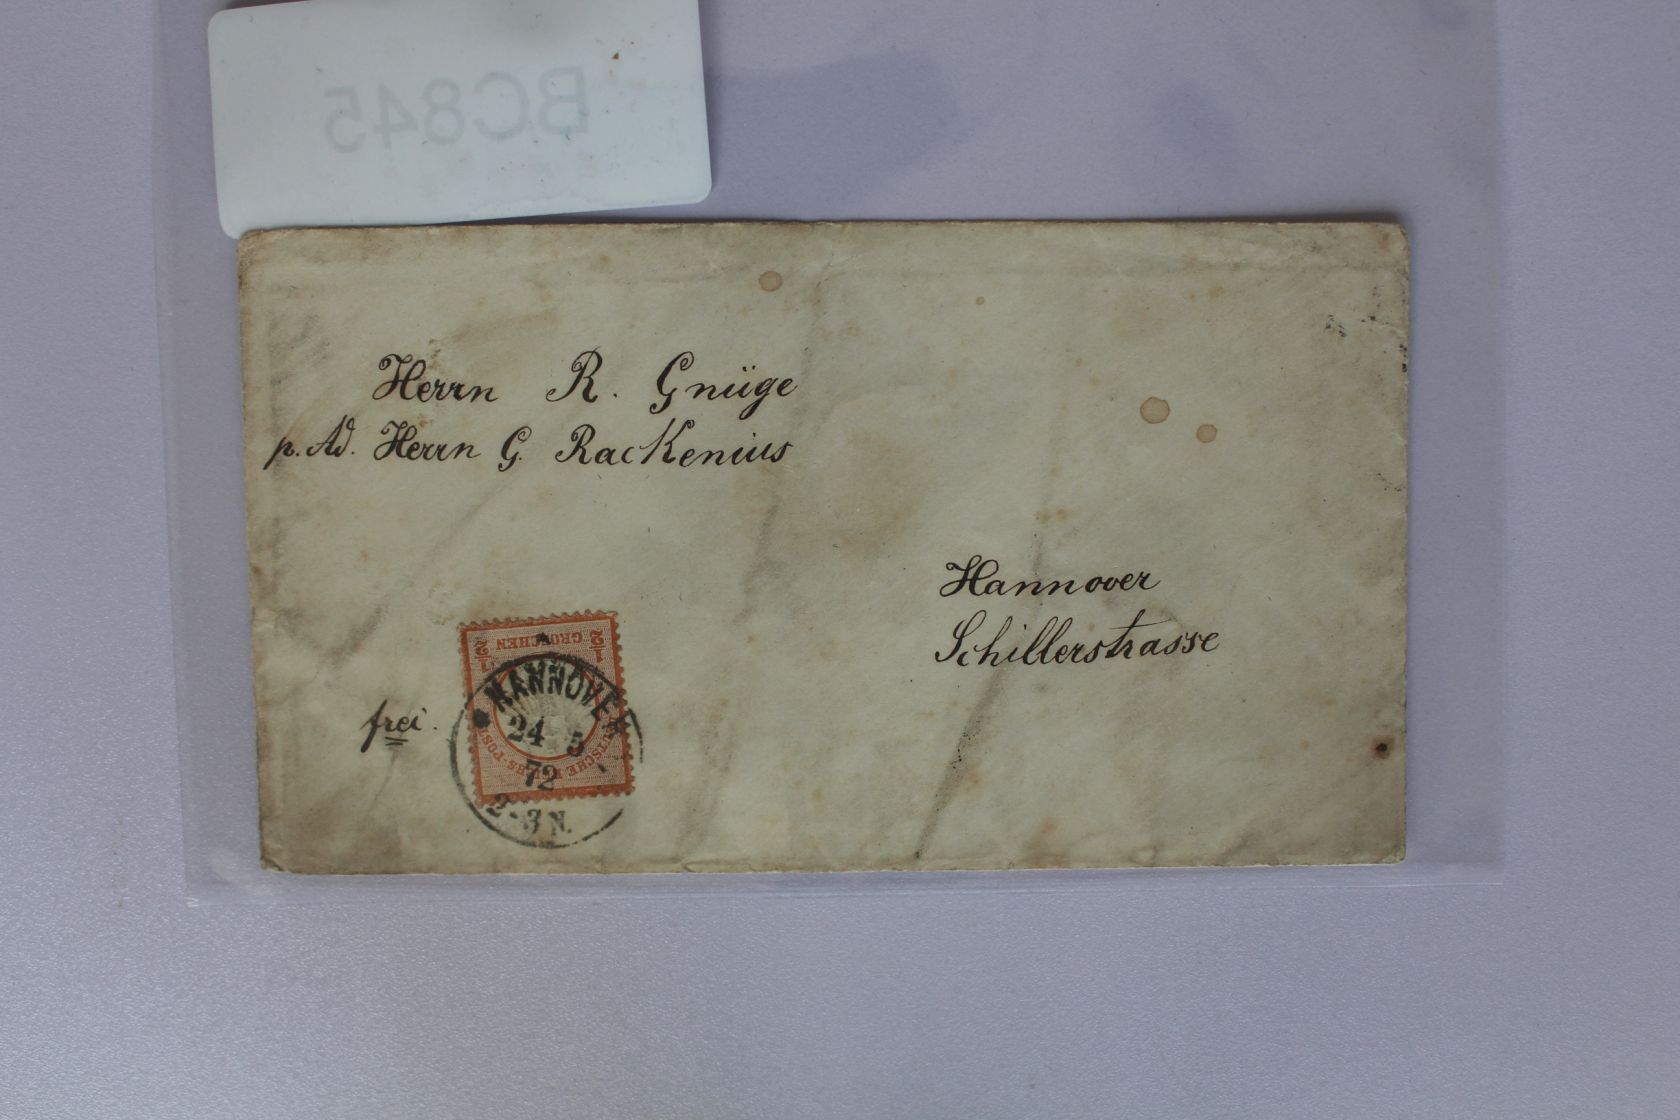 BC845
Herrn R. Gnüge
p. Ad. Herrn G. Rackenius
Hannover
Schillerstrasse
frei.
1/2 GROSCHEN 1/2
HANNOVER
24 5
72
2-3 N.